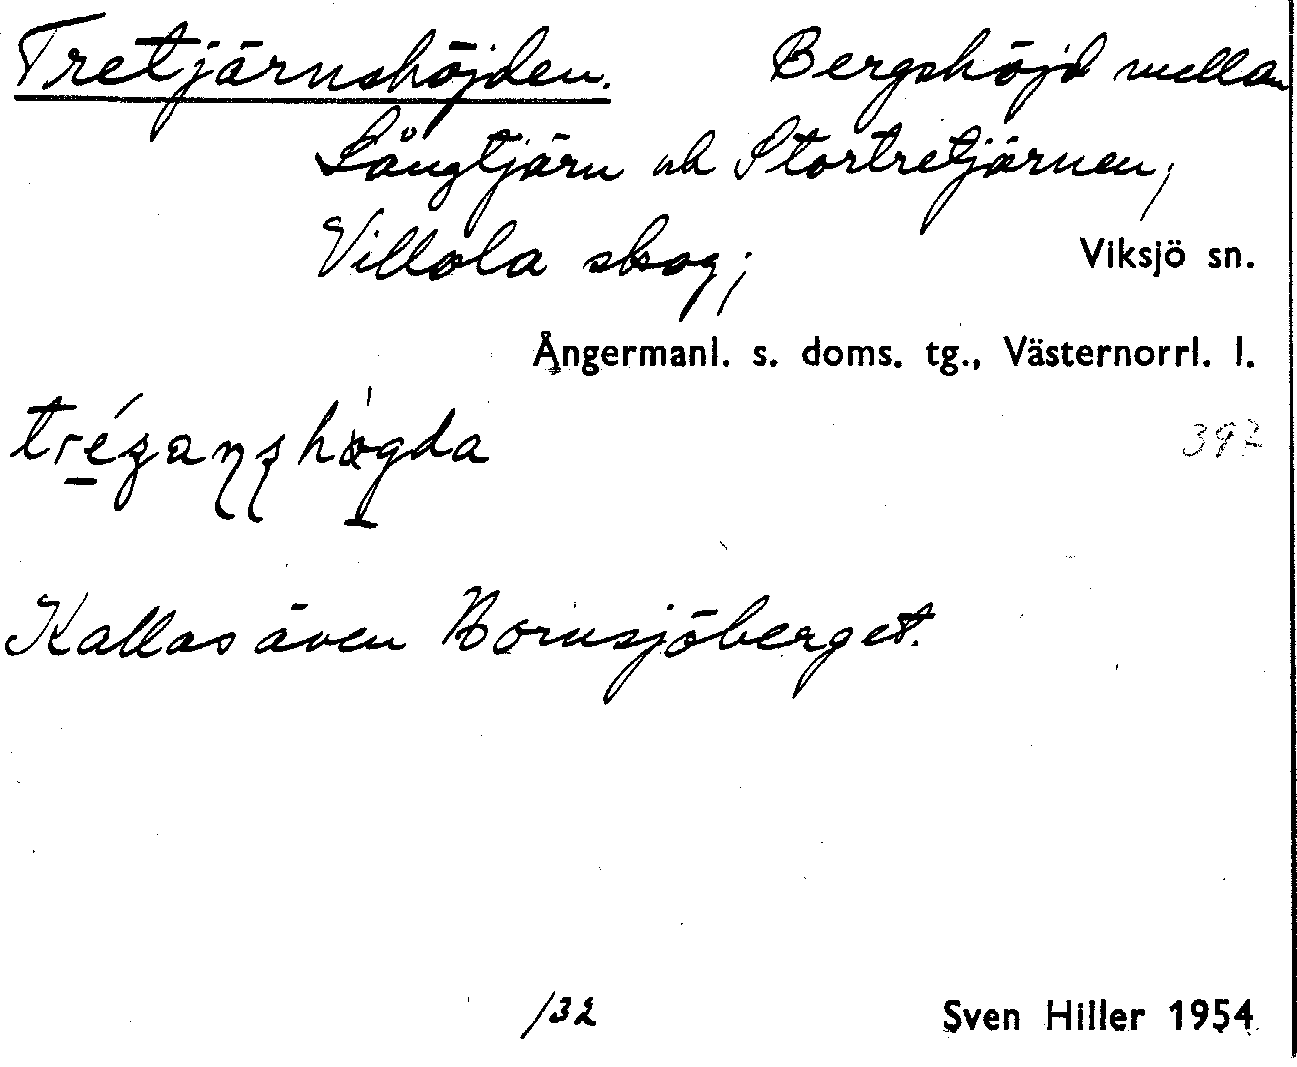 Tretjärnshöjden. Bergshöjd mellan
Långtjärn och Stortretjärnen,
Villola skog; Viksjö sn.
Ångermanl. s. doms. tg., Västernorrl. l.
392
Kallas även Bornsjöberget.
/32 Sven Hiller 1954